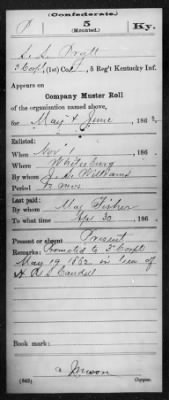 (Confederate.)
P 5 Ky.
(Mounted.)
S. S. Pratt
3 Corp, (1st) Co. , 5 Reg't Kentucky Inf.
Appears on
Company Muster Roll
of the organization named above,
for May & June , 186 2.
Enlisted:
When Nov 1 , 186
Where Whitesburg
By whom J. S. Williams
Period 12 mos
Last paid:
By whom Maj Fisher
To what time Apl 30 , 186
Present or absent Present
Remarks: Promoted to 3" Corpl
May 19, 1862 in lieu of
H. Caudill
Book mark:
(642)